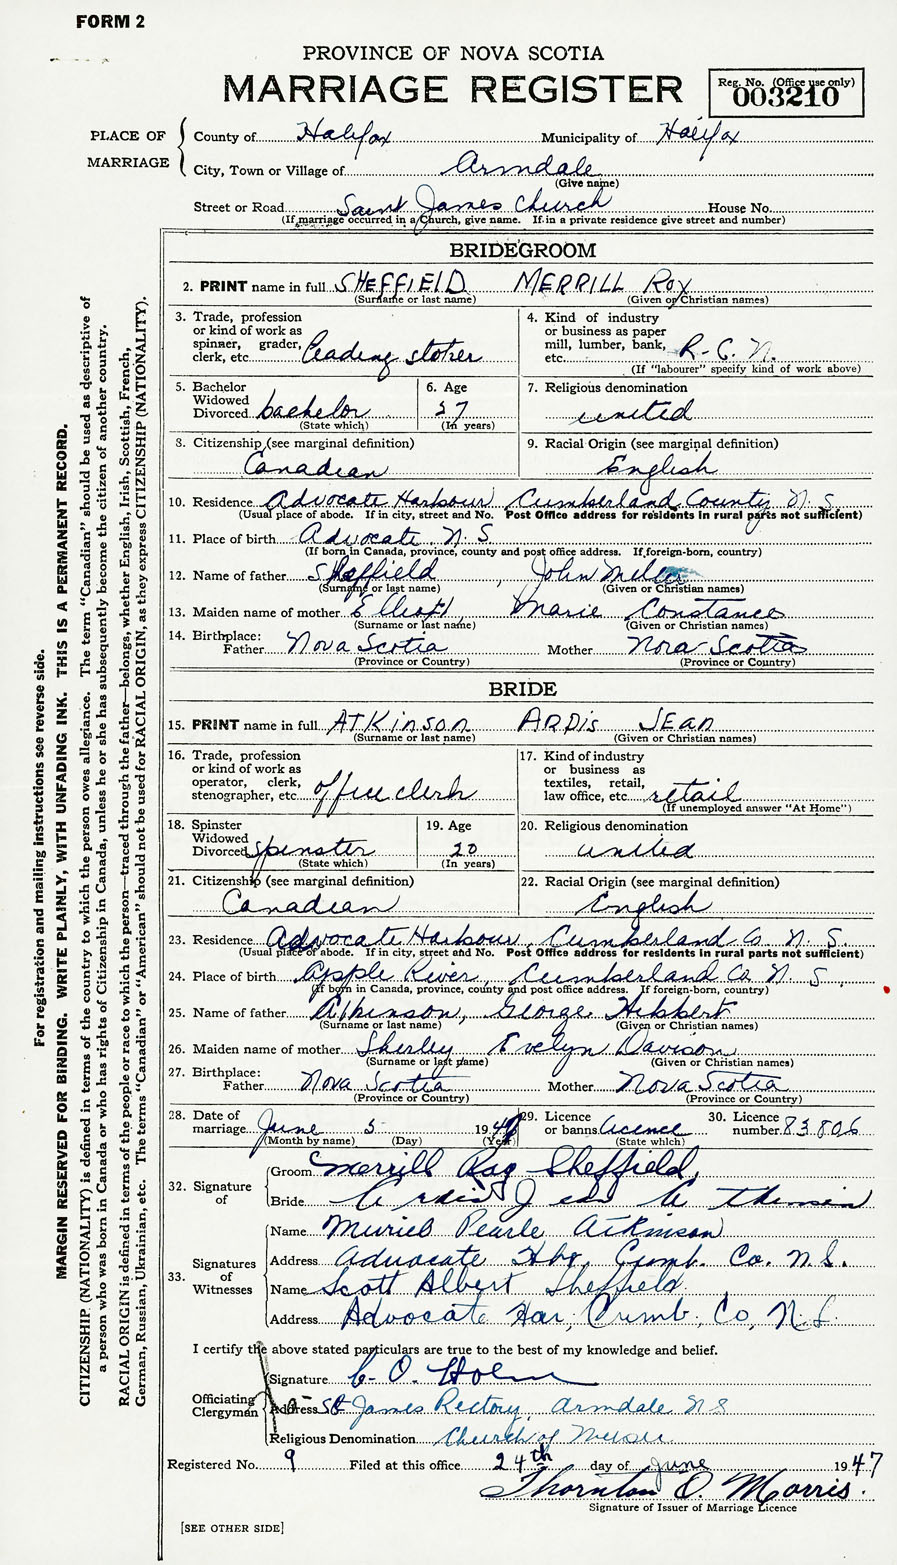 FORM 2
PROVINCE OF NOVA SCOTIA
MARRIAGE REGISTER
Reg. No. (Office use only)
003210
PLACE OF MARRIAGE
County of Halifax Municipality of Halifax
City, Town or Village of Armdale
(Give name)
Street or Road Saint James Church House No.
(If marriage occurred in a Church, give name. If in a private residence give street and number)
BRIDEGROOM
2. PRINT name in full SHEFFIELD MERRILL ROY
(Surname or last name) (Given or Christian names)
3. Trade, profession or kind of work as spinner, grader, clerk, etc. leading stoker
4. Kind of industry or business as paper mill, lumber, bank, etc. R.C.N.
(If "labourer" specify kind of work above)
5. Bachelor Widowed Divorced bachelor
(State which)
6. Age 27
(In years)
7. Religious denomination united
8. Citizenship (see marginal definition) Canadian
9. Racial Origin (see marginal definition) English
10. Residence Advocate Harbour, Cumberland County N.S.
(Usual place of abode. If in city, street and No. Post Office address for residents in rural parts not sufficient)
11. Place of birth Advocate N.S.
(If born in Canada, province, county and post office address. If foreign-born, country)
12. Name of father Sheffield, John
(Surname or last name) (Given or Christian names)
13. Maiden name of mother Marie Constance
(Surname or last name) (Given or Christian names)
14. Birthplace:
Father Nova Scotia Mother Nova Scotia
(Province or Country) (Province or Country)
BRIDE
15. PRINT name in full ATKINSON ARDIS JEAN
(Surname or last name) (Given or Christian names)
16. Trade, profession or kind of work as operator, clerk, stenographer, etc. office clerk
17. Kind of industry or business as textiles, retail, law office, etc. retail
(If unemployed answer "At Home")
18. Spinster Widowed Divorced Spinster
(State which)
19. Age 20
(In years)
20. Religious denomination united
21. Citizenship (see marginal definition) Canadian
22. Racial Origin (see marginal definition) English
23. Residence Advocate Harbour, Cumberland Co. N.S.
(Usual place of abode. If in city, street and No. Post Office address for residents in rural parts not sufficient)
24. Place of birth Apple River, Cumberland Co. N.S.
(If born in Canada, province, county and post office address. If foreign-born, country)
25. Name of father Atkinson, George Hibbert
(Surname or last name) (Given or Christian names)
26. Maiden name of mother Sherley Evelyn Davison
(Surname or last name) (Given or Christian names)
27. Birthplace:
Father Nova Scotia Mother Nova Scotia
(Province or Country) (Province or Country)
28. Date of marriage June 5 194
(Month by name) (Day) (Year)
29. Licence or banns Licence
(State which)
30. Licence number 83806
32. Signature of
Groom Merrill Roy Sheffield
Bride Ardis Jean Atkinson
33. Signatures of Witnesses
Name Muriel Pearle Atkinson
Address Advocate Hbr, Cumb. Co. N.S.
Name Scott Albert Sheffield
Address Advocate Har, Cumb. Co, N.S.
I certify the above stated particulars are true to the best of my knowledge and belief.
Officiating Clergyman
Signature C. O.
Address St James Rectory, Armdale N S
Religious Denomination Church of
Registered No. 9 Filed at this office 24th day of June 1947
Thornton D. Morris.
Signature of Issuer of Marriage Licence
[SEE OTHER SIDE]
For registration and mailing instructions see reverse side.
MARGIN RESERVED FOR BINDING. WRITE PLAINLY, WITH UNFADING INK. THIS IS A PERMANENT RECORD.
CITIZENSHIP (NATIONALITY) is defined in terms of the country to which the person owes allegiance. The term "Canadian" should be used as descriptive of
a person who was born in Canada or who has rights of Citizenship in Canada, unless he or she has subsequently become the citizen of another country.
RACIAL ORIGIN is defined in terms of the people or race to which the person—traced through the father—belongs, whether English, Irish, Scottish, French,
German, Russian, Ukrainian, etc. The terms "Canadian" or "American" should not be used for RACIAL ORIGIN, as they express CITIZENSHIP (NATIONALITY).